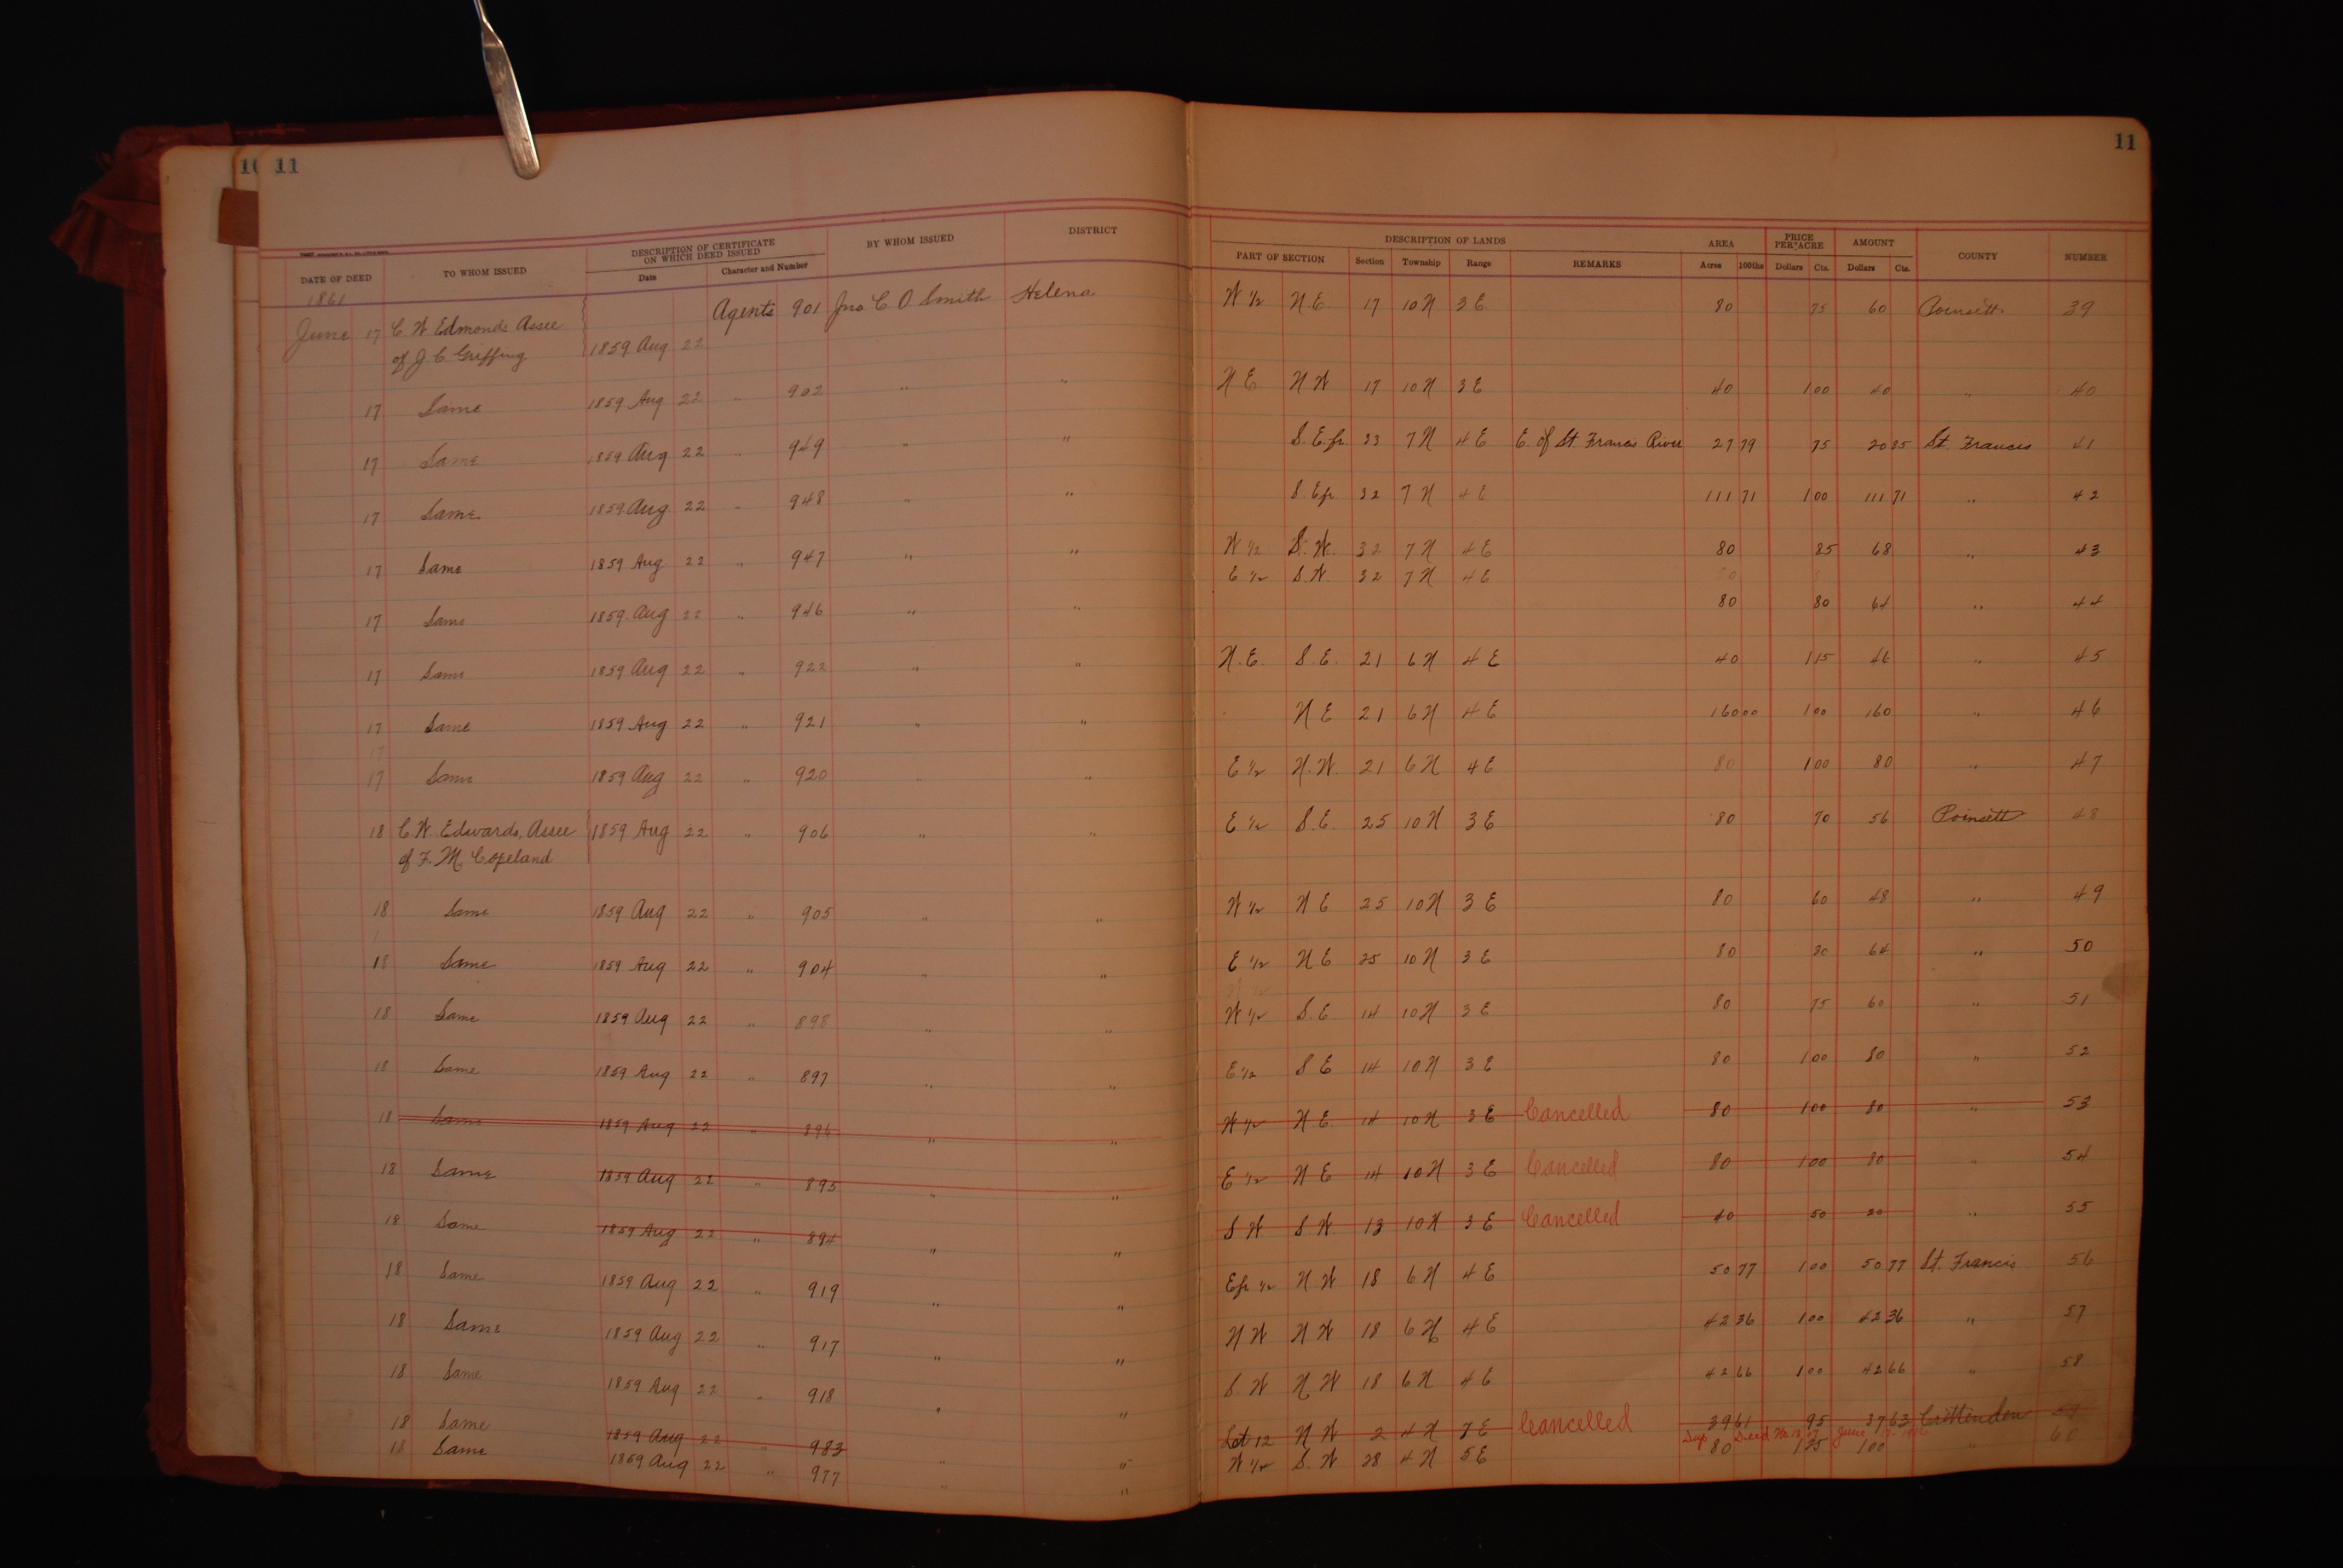 11
11
DESCRIPTION OF CERTIFICATE ON WHICH DEED ISSUED BY WHOM ISSUED DISTRICT DESCRIPTION OF LANDS AREA PRICE PER ACRE AMOUNT COUNTY NUMBER
DATE OF DEED TO WHOM ISSUED Date Character and Number PART OF SECTION Section Township Range REMARKS Acres 100ths Dollars Cts. Dollars Cts.
1861
June 17 C W Edmonds Assee 1859 Aug 22 Agents 901 Jno C O Smith Helena W 1/2 N.E. 17 10 N 3 E 80 75 60 Poinsett 39
of J C Griffing
17 Same 1859 Aug 22 " 902 " " N E N W 17 10 N 3 E 40 1 00 40 " 40
17 Same 1859 Aug 22 " 949 " " S. E. fr 33 7 N 4 E E. of St Francis River 27 79 75 20 85 St. Francis 41
17 Same 1859 Aug 22 " 948 " " S. E fr 32 7 N 4 E 111 71 1 00 111 71 " 42
17 Same 1859 Aug 22 " 947 " " W 1/2 S. W. 32 7 N 4 E 80 85 68 " 43
E 1/2 S. W. 32 7 N 4 E
17 Same 1859 Aug 22 " 946 " " 80 80 64 " 44
17 Same 1859 Aug 22 " 922 " " N. E. S. E. 21 6 N 4 E 40 1 15 46 " 45
17 Same 1859 Aug 22 " 921 " " N E 21 6 N 4 E 160 00 1 00 160 " 46
17
17 Same 1859 Aug 22 " 920 " " E 1/2 N. W. 21 6 N 4 E 80 1 00 80 " 47
18 C. W. Edwards, Assee 1859 Aug 22 " 906 " " E 1/2 S. E. 25 10 N 3 E 80 70 56 Poinsett 48
of F. M. Copeland
18 Same 1859 Aug 22 " 905 " " W 1/2 N E 25 10 N 3 E 80 60 48 " 49
18 Same 1859 Aug 22 " 904 " " E 1/2 N E 25 10 N 3 E 80 80 64 " 50
18 Same 1859 Aug 22 " 898 " " W 1/2 S. E. 14 10 N 3 E 80 75 60 " 51
18 Same 1859 Aug 22 " 897 " " E 1/2 S E 14 10 N 3 E 80 1 00 80 " 52
18 Same 1859 Aug 22 " 896 " " W 1/2 N E. 14 10 N 3 E Cancelled 80 1 00 80 " 53
18 Same 1859 Aug 22 " 895 " " E 1/2 N E 14 10 N 3 E Cancelled 80 1 00 80 " 54
18 Same 1859 Aug 22 " 894 " " S W S W. 13 10 N 3 E Cancelled 40 50 20 " 55
18 Same 1859 Aug 22 " 919 " " E fr 1/2 N W 18 6 N 4 E 50 77 1 00 50 77 St. Francis 56
18 Same 1859 Aug 22 " 917 " " N W N W 18 6 N 4 E 42 36 1 00 42 36 " 57
18 Same 1859 Aug 22 " 918 " " S. W N W 18 6 N 4 E 42 66 1 00 42 66 " 58
18 Same 1859 Aug 22 " 983 " " Lot 12 N W 2 4 N 7 E Cancelled 39 61 95 37 63 Crittenden 59
Deed No. June
18 Same 1859 Aug 22 " 977 " " W 1/2 S. W 28 4 N 5 E 80 1 25 100 " 60